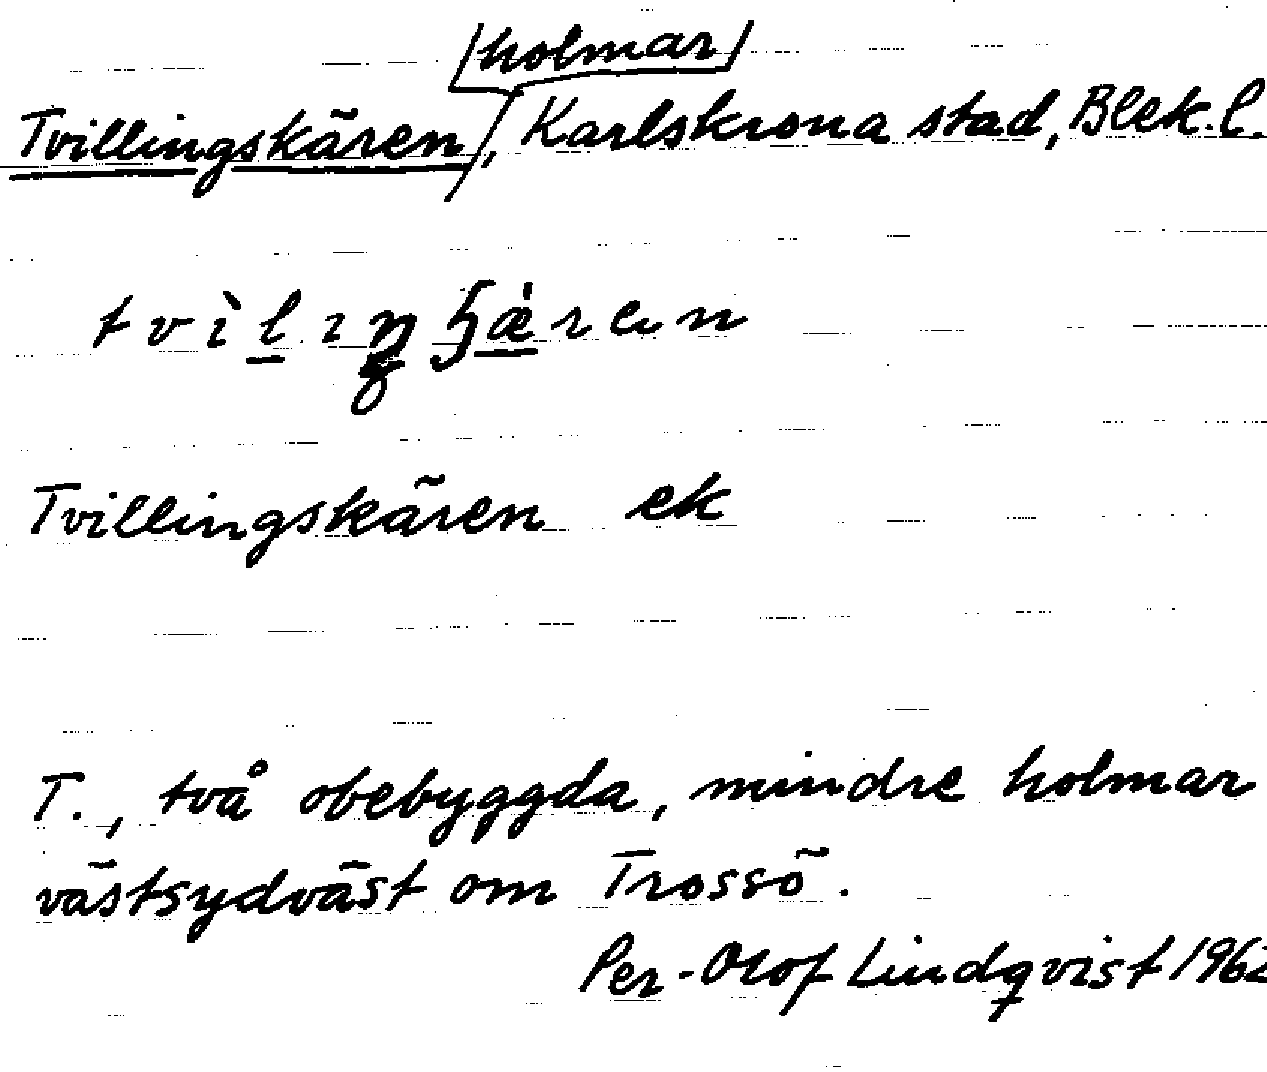 holmar
Tvillingskären, Karlskrona stad, Blek.l.
Tvillingskären ek
T., två obebyggda, mindre holmar
västsydväst om Trossö.
Per-Olof Lindqvist 1962